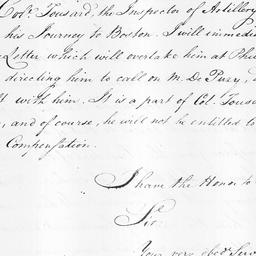 Colo. Tousard, the Inspector of Artillery
his Journey to Boston. I will immedi
Letter which will overtake him at Phil
directing him to call on M. De Pusy,
it with him. It is a part of Col. Tousa
, and of course, he will not be entitled to
Compensation.
I have the Honor to
Sir
Your very obedt. Serv